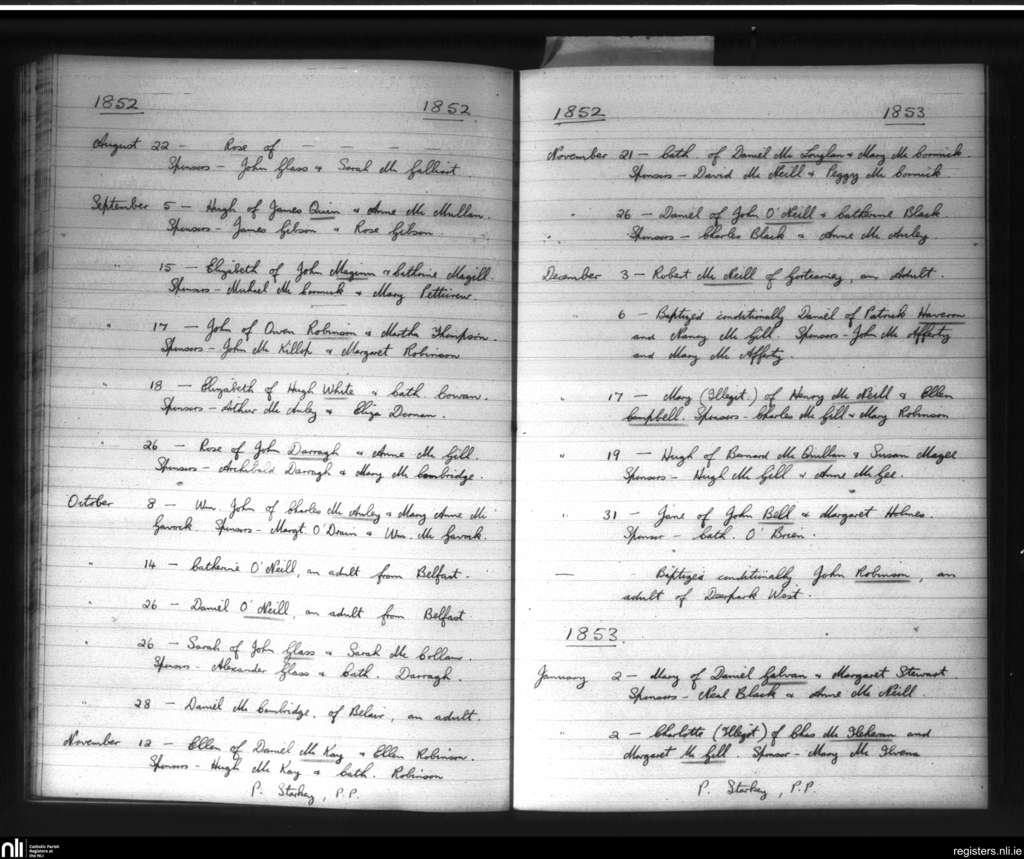 1852 1852
August 22 - Rose of - - - - -
Sponsors - John Glass & Sarah Mc Galliart
September 5 - Hugh of James Quin & Anne Mc Mullan.
Sponsors - James Gibson & Rose Gibson.
" 15 - Elizabeth of John Maginn & Catherine Magill.
Sponsors - Michael Mc Cormick & Mary Petticrew.
" 17 - John of Owen Robinson & Martha Thompson.
Sponsors - John Mc Killop & Margaret Robinson
" 18 - Elizabeth of Hugh White & Cath. Cowan.
Sponsors - Arthur Mc Auley & Eliza Dornan.
" 26 - Rose of John Darragh & Anne Mc Gill.
Sponsors - Archibald Darragh & Mary Mc Cambridge.
October 8 - Wm. John of Charles Mc Auley & Mary Anne Mc
Gavock. Sponsors - Margt. O'Drain & Wm. Mc Gavock.
" 14 - Catherine O'Neill, an adult from Belfast.
" 26 - Daniel O'Neill, an adult from Belfast
" 26 - Sarah of John Glass & Sarah Mc Collam.
Sponsors - Alexander Glass & Cath. Darragh.
" 28 - Daniel Mc Cambridge, of Belair, an adult.
November 12 - Ellen of Daniel Mc Kay & Ellen Robinson.
Sponsors - Hugh Mc Kay & Cath. Robinson
P. Starkey, P.P.
1852 1853
November 21 - Cath. of Daniel Mc Loughlan & Mary Mc Cormick.
Sponsors - David Mc Neill & Peggy Mc Cormick
" 26 - Daniel of John O'Neill & Catherine Black.
" Sponsors - Charles Black & Anne Mc Auley
December 3 - Robert Mc Neill of Gortcarney, an Adult.
" 6 - Baptized conditionally Daniel of Patrick Haveron
and Nancy Mc Gill. Sponsors - John Mc Afferty
and Mary Mc Afferty.
" 17 - Mary (Illegit.) of Henry Mc Neill & Ellen
Campbell. Sponsors - Charles Mc Gill & Mary Robinson
" 19 - Hugh of Bernard Mc Quillan & Susan Magee
Sponsors - Hugh Mc Gill & Anne McGee.
" 31 - Jane of John Bell & Margaret Holmes.
Sponsor - Cath. O'Brien.
- Baptized conditionally John Robinson, an
adult of Deerpark West.
1853.
January 2 - Mary of Daniel Galvan & Margaret Stewart.
Sponsors - Neal Black & Anne Mc Neill.
" 2 - Charlotte (Illegit) of Chas Mc and
Margaret Mc Gill. Sponsor - Mary Mc Ilvena
P. Starkey, P.P.
nli Catholic Parish
Registers at
the NLI
registers.nli.ie